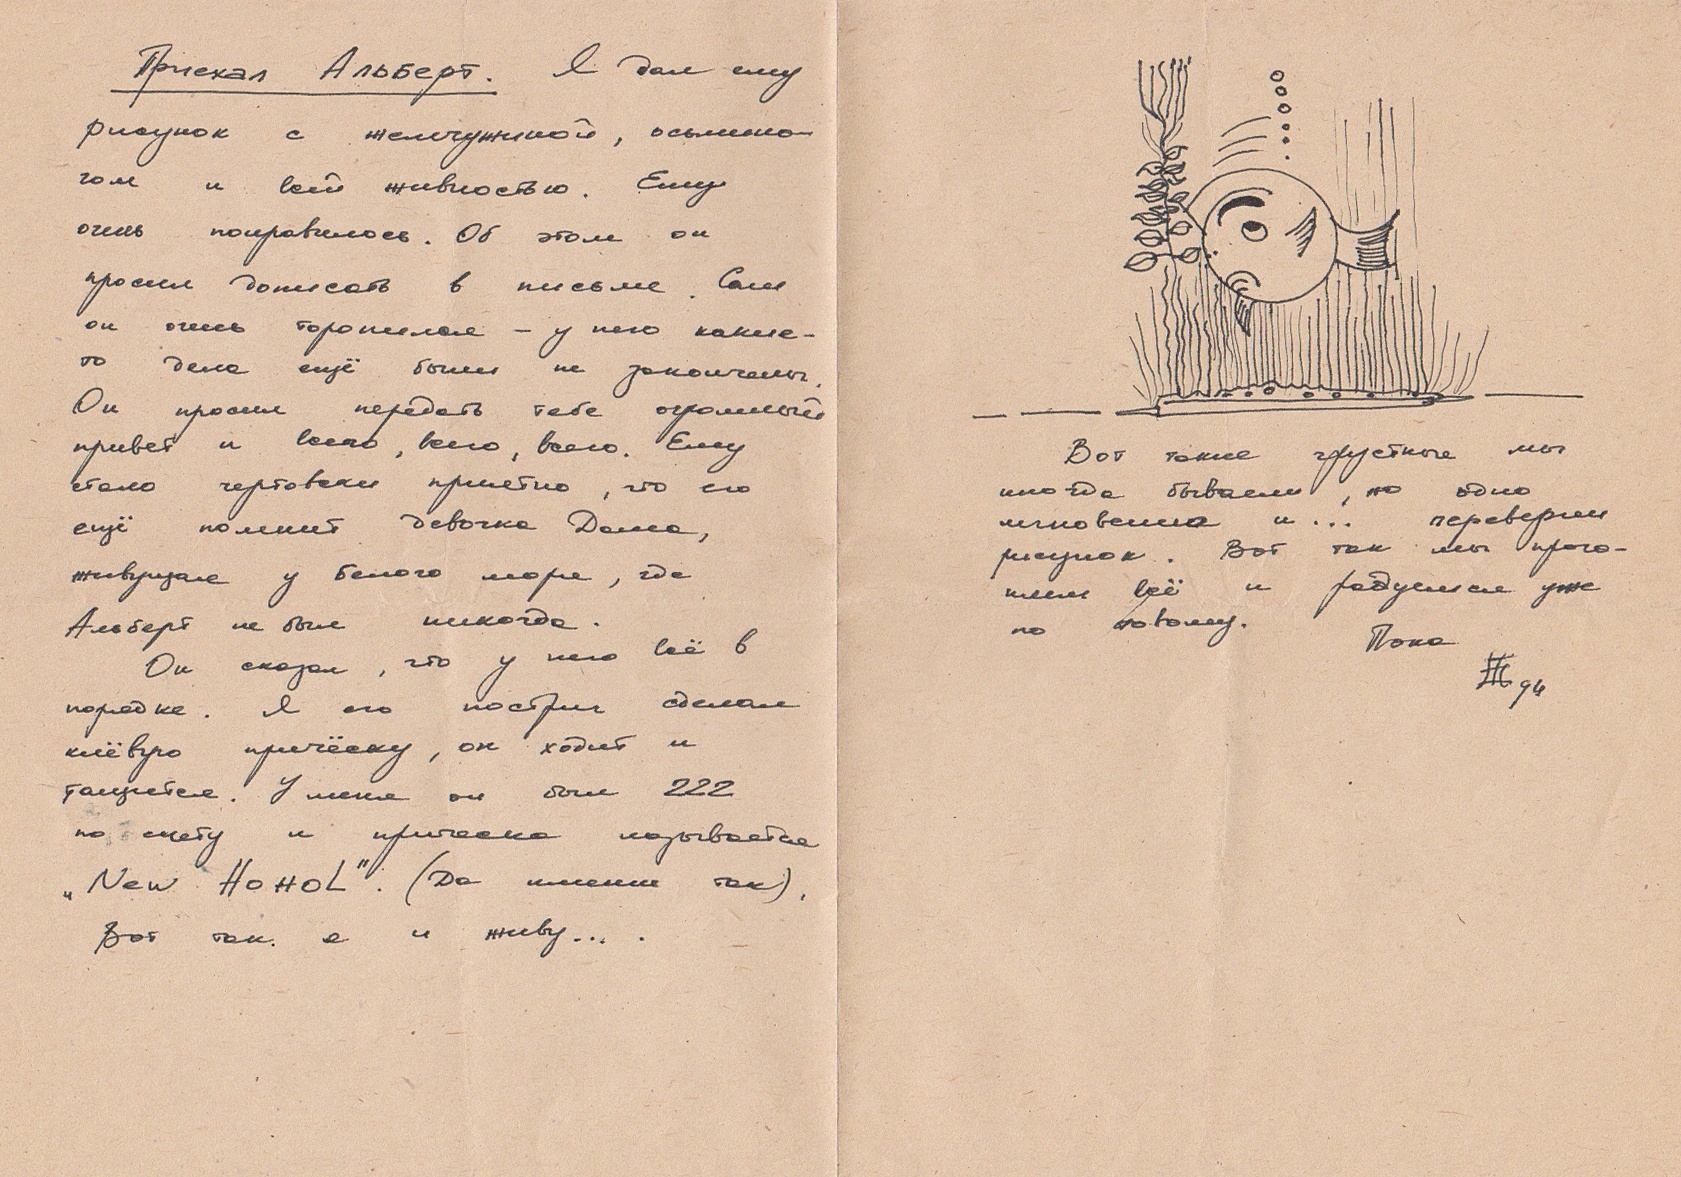 Приехал Альберт. Я дал ему
рисунок с жемчужиной, осьмино-
гом и всей живностью. Ему
очень понравилось. Об этом он
просил дописать в письме. Сам
он очень торопился – у него какие-
то дела ещё были не закончены.
Он просил передать тебе огромный
привет и всего, всего, всего. Ему
стало чертовски приятно, что его
ещё помнит девочка Даша,
живущая у белого моря, где
Альберт не был никогда.
Он сказал, что у него всё в
порядке. Я его постриг сделал
клёвую причёску, он ходит и
тащится. У меня он был 222
по счету и прическа называется
„New HoHHoL". (Да именно так).
Вот так я и живу... .
Вот такие грустные мы
иногда бываем, но одно
мгновение и... переверни
рисунок. Вот так мы прого-
ним всё и радуемся уже
по новому.
Пока
94